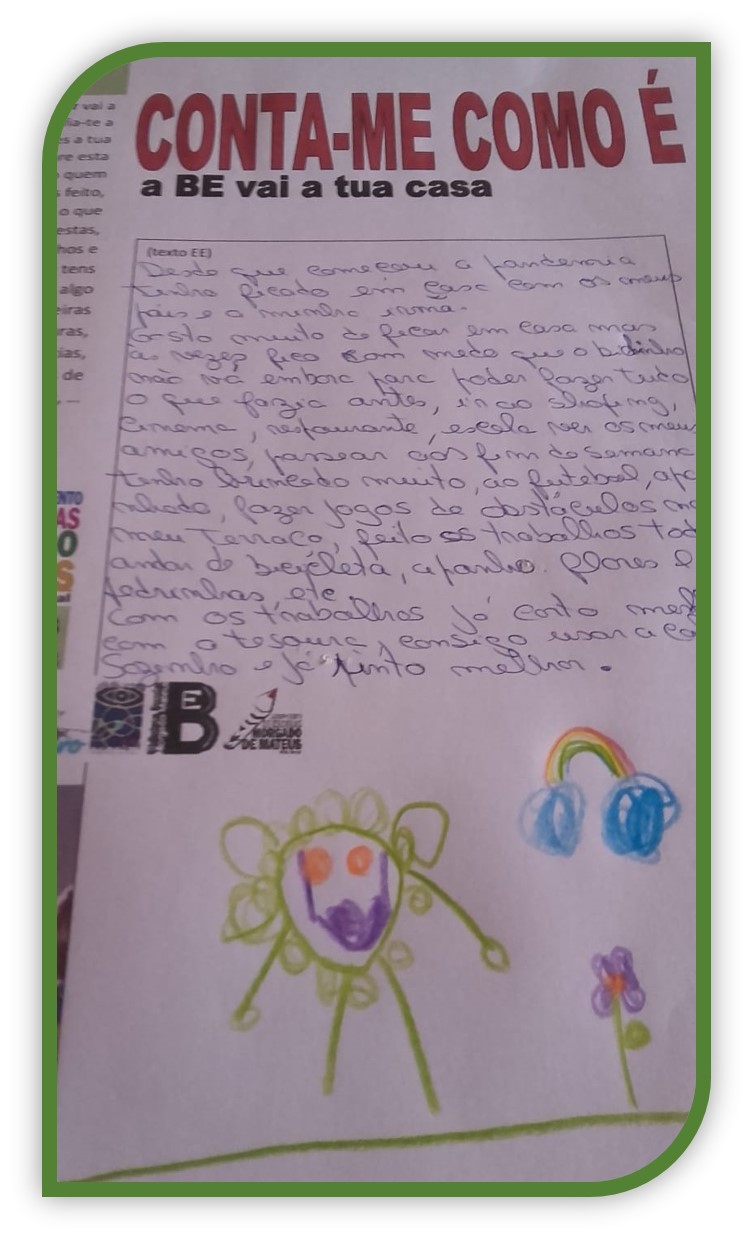 r vai a
ia-te a
s a tua
re esta
quem
feito,
o que
estas,
hos e
tens
algo
eiras
ras,
ias,
de
CONTA-ME COMO É
a BE vai a tua casa
(texto EE)
Desde que começou a pandemia
tenho ficado em casa com os meus
pais e a minha irmã.
Gosto muito de ficar em casa mas
às vezes fico com medo que o bichinho
não vá embora para poder fazer tudo
o que fazia antes, ir ao
cinema, restaurante, escola ver os meus
amigos, passear aos fim de semana
tenho brincado muito, ao futebol, apa
nhada, fazer jogos de obstáculos no
meu terraço, feito os trabalhos tod
andar de bicicleta, apanho flores e
pedrinhas etc.
Com os trabalhos já corto mel
com a tesoura, consigo usar a co
sozinho e já pinto melhor.
NTO
AS
O
S
BE
MORGADO
DE MATEUS